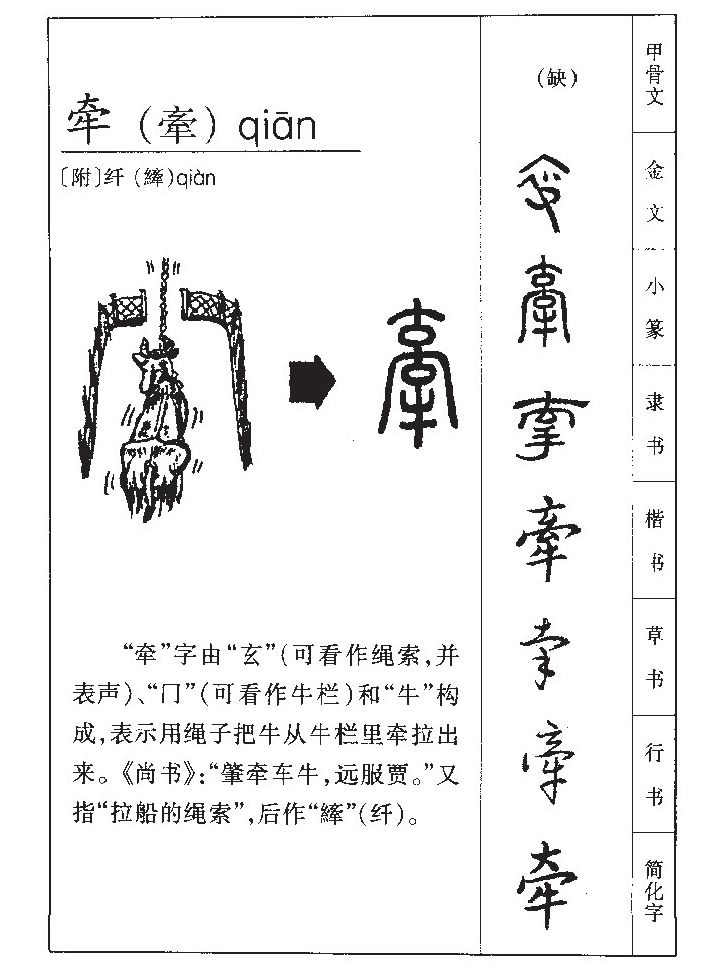 牵（牽）qiān
〔附〕纤（縴）qiàn
牽
“牵”字由“玄”（可看作绳索，并
表声）、“冂”（可看作牛栏）和“牛”构
成，表示用绳子把牛从牛栏里牵拉出
来。《尚书》：“肇牵车牛，远服贾。”又
指“拉船的绳索”，后作“縴”（纤）。
（缺）
甲骨文
金文
牽
小篆
牽
隶书
牽
楷书
牵
草书
牽
行书
牵
简化字